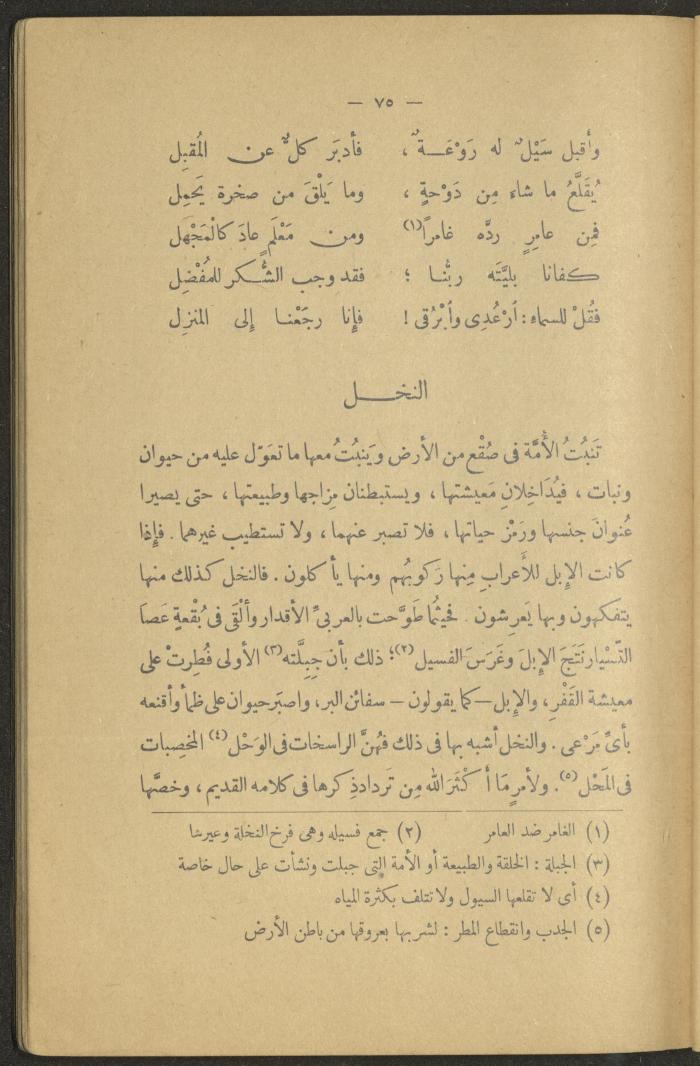 — ٧٥ —
وأقبل سَيْلٌ له رَوْعَـــةٌ ، فأدبَر كلٌّ عن المُقبِل
يُقَلَّعُ ما شاء مِن دَوْحةٍ ، وما يَلْقَ من صخرة يَحمِل
فمِن عامِرٍ ردَّه غامراً(١) ومن مَعْلَمٍ عادَ كالْمَجْهَل
كفانا بليَّته ربُّنا ؛ فقد وجب الشُّكر للمُفْضِل
فقُلْ للسماء : اُرْعُدِى واُبْرُقى ! فإِنا رجَعْنا إِلى المنزِل
النخـــل
تَنبُتُ الأُمَّة فى صُقْع من الأرض ويَنبُتُ معها ما تعَوّل عليه من حيوان
ونبات ، فيُدَاخِلانِ مَعيشتها ، ويستبطنان مِزاجها وطبيعتها ، حتى يصيرا
عُنوانَ جنسها ورَمْزَ حياتها ، فلا تصبر عنهما ، ولا تستطيب غيرهما . فإِذا
كانت الإِبل للأَعرابِ مِنها رَكوبُهم ومنها يأكلون . فالنخل كذلك منها
يتفكهون وبها يَعرِشون . فحيثُما طَوَّحت بالعربىِّ الأقدار وأَلْقَى فى بُقْعةٍ عَصَا
التَّسْيار نَتَجَ الإِبلَ وغَرَسَ الفسيل(٢)؛ ذلك بأن جِبِلَّته(٣) الأولى فُطِرتْ على
معيشة القَفْرِ ، والإِبل — كما يقولون — سفائن البر ، واصبَر حيوان على ظمأ وأقنعه
بأىِّ مَرْعى . والنخل أشبه بها فى ذلك فهُنَّ الراسخات فى الوَحْل(٤) المخصِبات
فى المَحْل(٥). ولأمرٍ مَا أَكْثَرَ الله مِن تَرداد ذِكرها فى كلامه القديم ، وخصَّها
(١) الغامر ضد العامر (٢) جمع فسيله وهى فرخ النخلة وغيرها
(٣) الجبلة : الخلقة والطبيعة أو الأمة التى جبلت ونشأت على حال خاصة
(٤) أى لا تقلعها السيول ولا تتلف بكثرة المياه
(٥) الجدب وانقطاع المطر : لشربها بعروقها من باطن الأرض